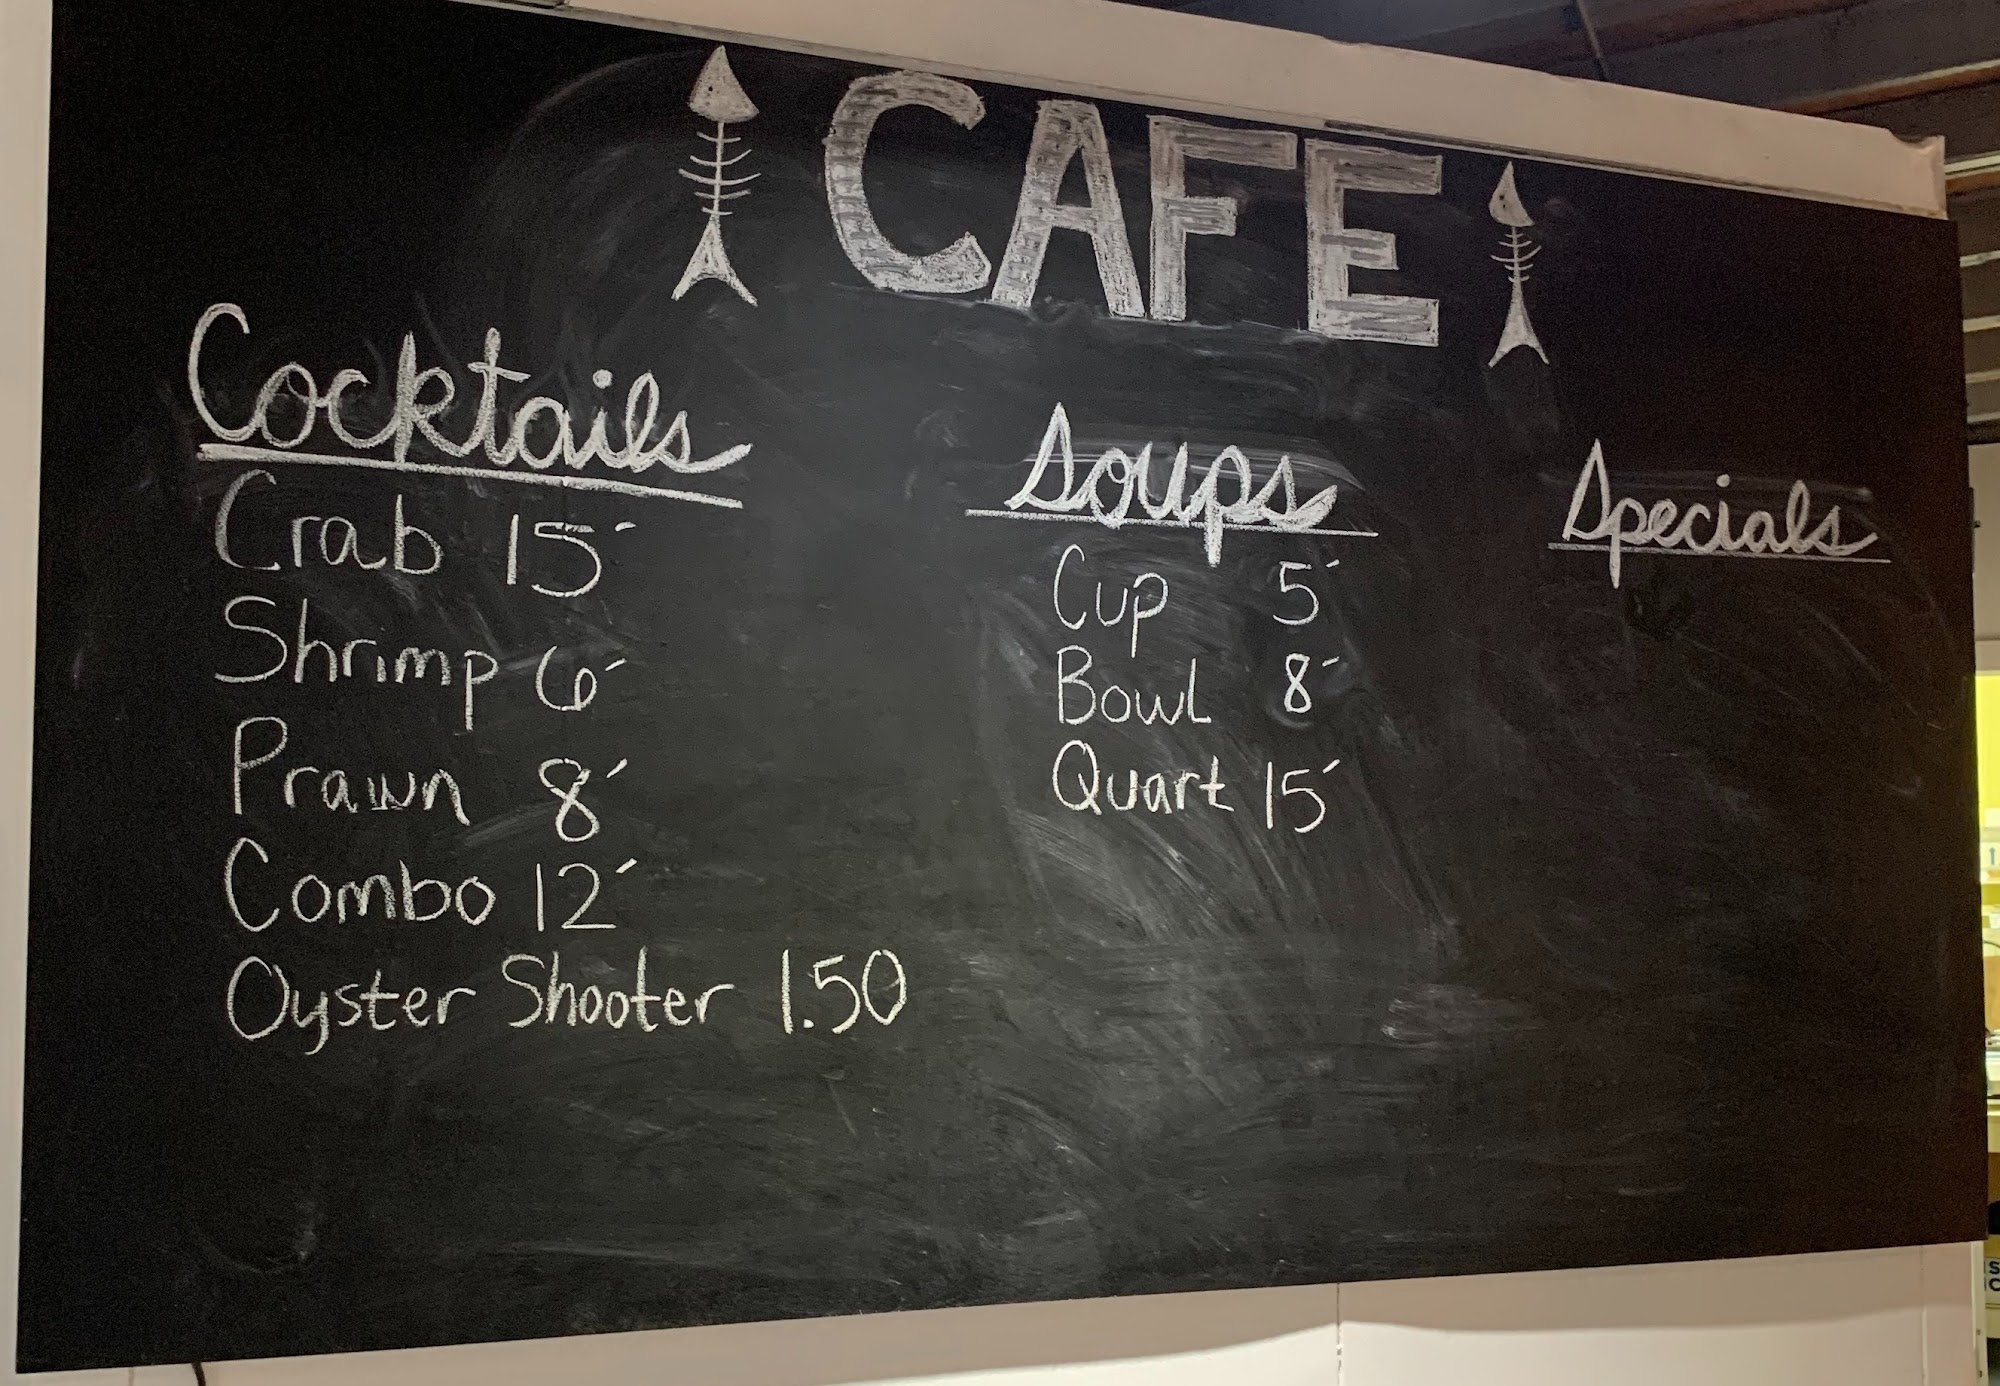 CAFE
Cocktails
Crab 15
Shrimp 6
Prawn 8
Combo 12
Oyster Shooter 1.50
Soups
Cup 5
Bowl 8
Quart 15
Specials